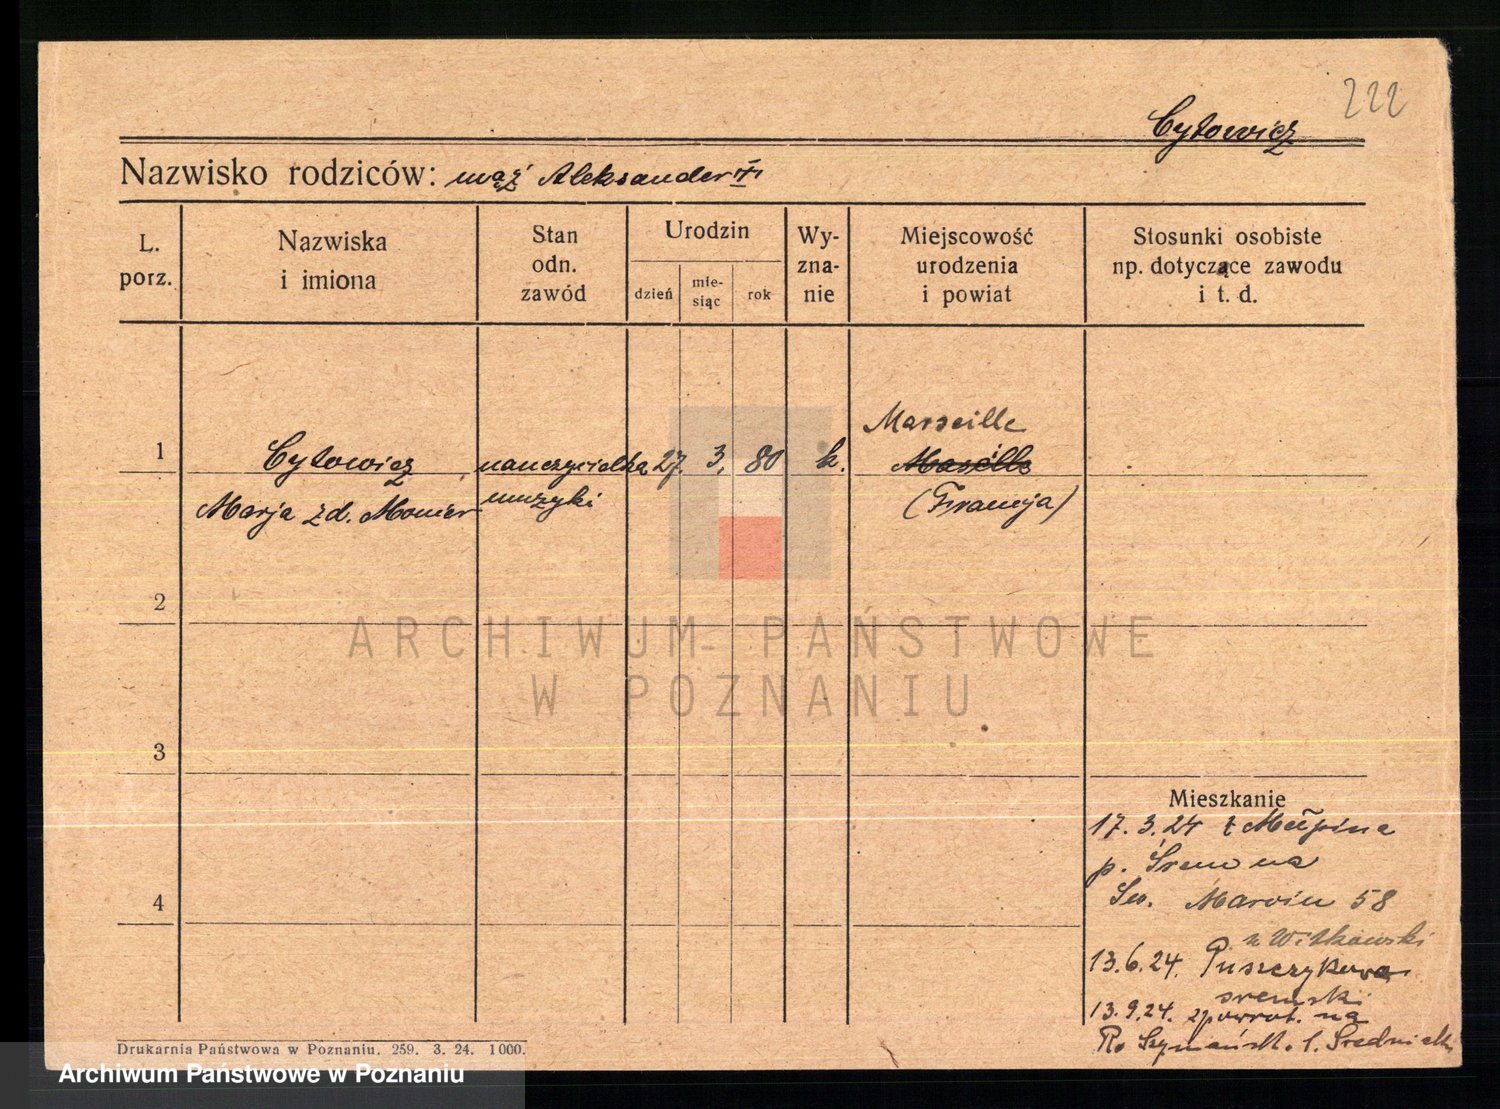 222
Cytowicz
Nazwisko rodziców: mąż Aleksander
L. porz.
Nazwiska i imiona
Stan odn. zawód
Urodzin
dzień
mie-siąc
rok
Wy-zna-nie
Miejscowość urodzenia i powiat
Stosunki osobiste np. dotyczące zawodu i t. d.
1
Cytowicz
nauczycielka
27. 3. 80
k.
Marseille
Maseille
Marja zd. Monier
muzyki
(Francja)
2
ARCHIWUM PAŃSTWOWE
W POZNANIU
3
4
Mieszkanie
17. 3. 24 z
p. Śrem na
Św. Marcin 58
u Witkowski
13. 6. 24. Puszczykowo
śremski
13. 9. 24. zpowrot. na
Drukarnia Państwowa w Poznaniu. 259. 3. 24. 1000.
Archiwum Państwowe w Poznaniu